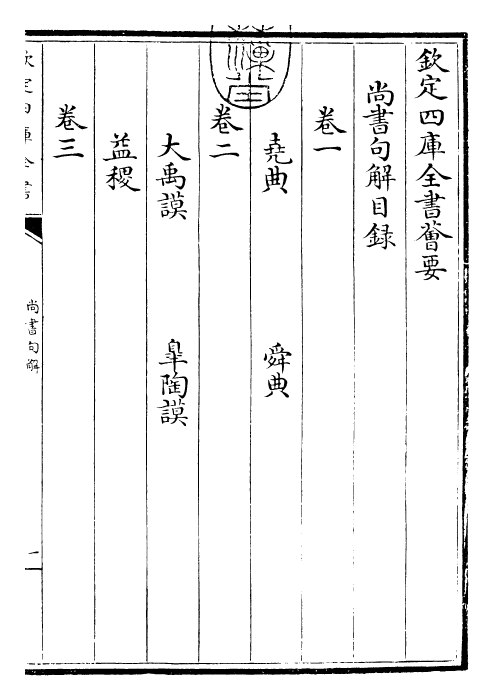 欽定四庫全書薈要
尚書句解目録
卷一
堯典 舜典
卷二
大禹謨 臯陶謨
益稷
卷三
欽定四庫全書
尚書句解
一